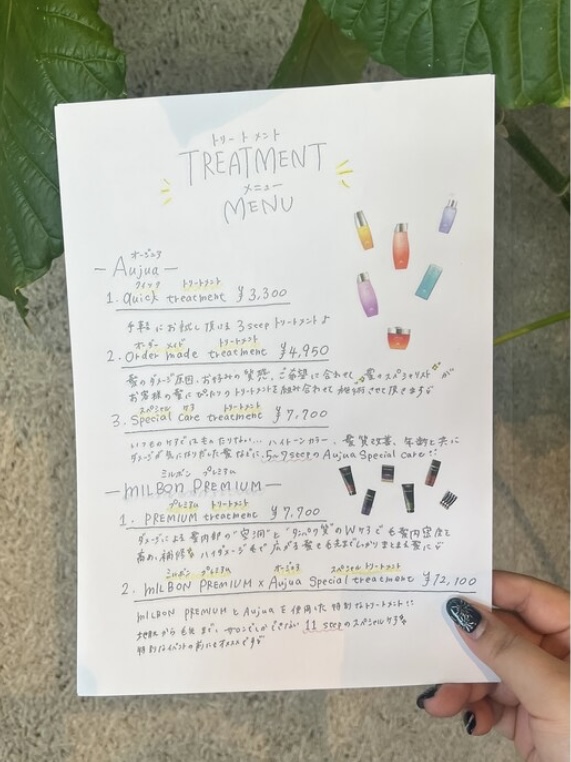 トリートメント
TREATMENT
メニュー
MENU
オージュア
— Aujua —
クイック トリートメント
1. Quick treatment ¥3,300
手軽にお試し頂ける 3step トリートメント♪
オーダー メイド トリートメント
2. Order made treatment ¥4,950
髪のダメージ原因、お好みの質感、ご希望に合わせて、髪のスペシャリスト
お客様の髪にぴったりトリートメントを組み合わせて施術させて頂きます が
スペシャル ケア トリートメント
3. Special care treatment ¥7,700
いつものケアではものたりない… ハイトーンカラー、髪質改善、年齢と共に
ダメージが気になりだった髪などに、5~7stepの Aujua Special care!!
ミルボン プレミアム
— MILBON PREMIUM —
プレミアム トリートメント
1. PREMIUM treatment ¥7,700
ダメージによる髪内部の"空洞"と"タンパク質"のWケアでも髪内密度を
高め、補修 ハイダメージ毛で広がる髪も毛先までしっかりまとまる髪に
ミルボン プレミアム オージュア スペシャルトリートメント
2. MILBON PREMIUM × Aujua Special treatment ¥12,100
MILBON PREMIUMとAujuaを使用した特別なトリートメント!!
地肌から毛先まで、サロンでしかできない 11 stepのスペシャルケア
特別なイベントの前にもオススメです